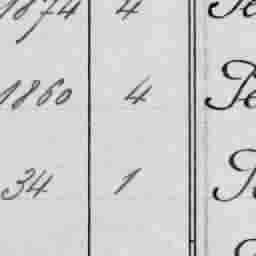 1874 4 Pe
1860 4 Pe
34 1